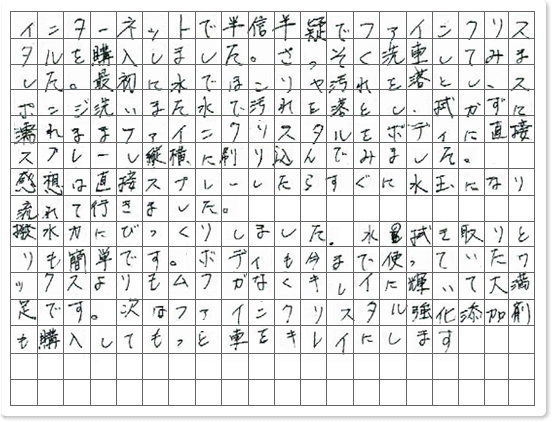 インターネットで半信半疑でファインクリス
タルを購入しました。さっそく洗車してみま
した。最初に水でほこりや汚れを落とし、ス
ポンジ洗いまた水で汚れを落とし、拭かずに
濡れたままファインクリスタルをボディに直接
スプレーし縦横に刷り込んでみました。
感想は直接スプレーしたらすぐに水玉になり
流れて行きました。
撥水力にびっくりしました。水量拭き取りと
りも簡単です。ボディも今まで使っていたワ
ックスよりもムラがなくキレイに輝いて大満
足です。次はファインクリスタル強化添加剤
も購入してもっと車をキレイにします